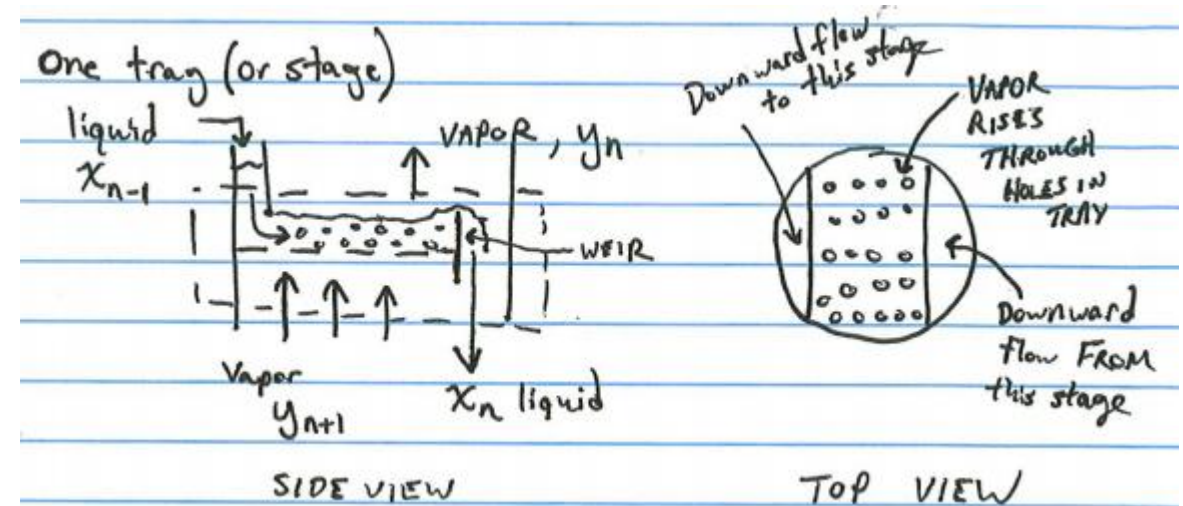 One tray (or stage)
liquid
x_{n-1}
VAPOR, y_n
WEIR
Vapor
y_{n+1}
x_n liquid
SIDE VIEW
Downward flow
to this stage
VAPOR
RISES
THROUGH
HOLES IN
TRAY
Downward
flow FROM
this stage
TOP VIEW